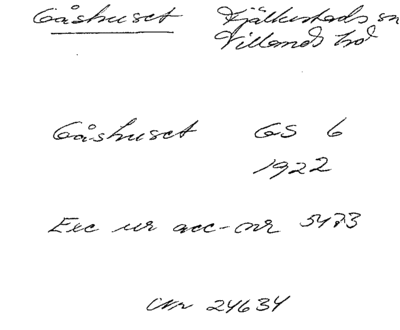 Gåshuset Fjälkestads sn
Villands hd
Gåshuset GS 6
1922
Exc ur acc-nr 5473
Nr 24634